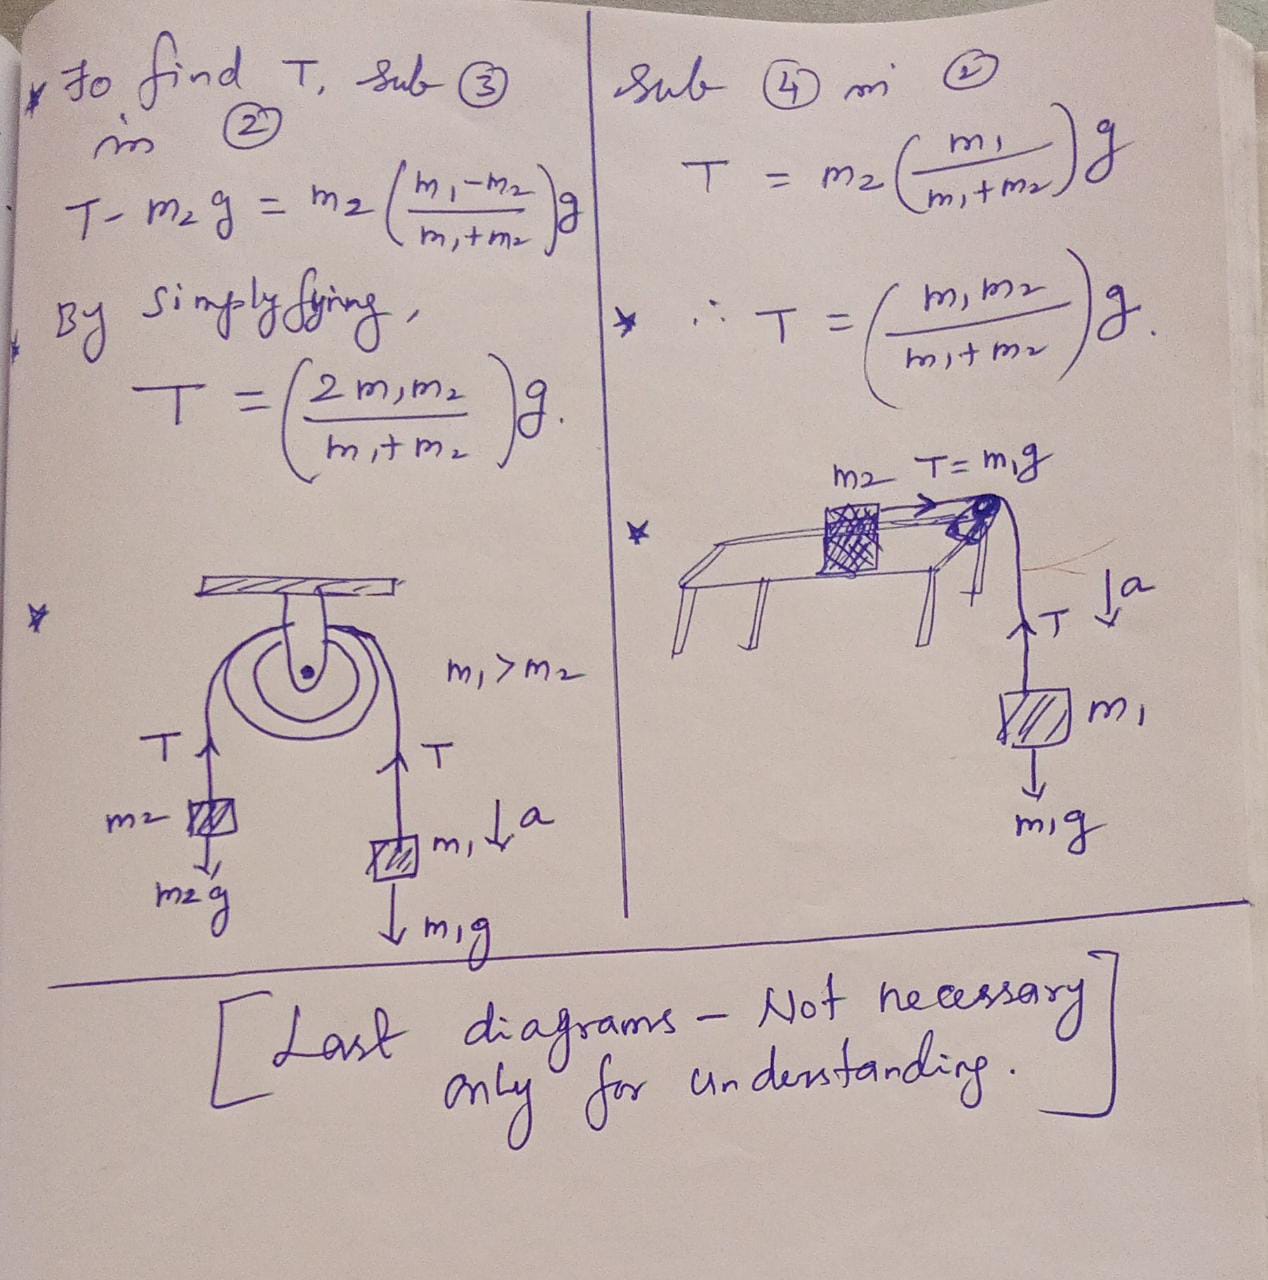 * To find T, sub ③
in ②
T - m₂g = m₂ (m₁-m₂ / m₁+m₂) g
By simplyfying,
T = (2m₁m₂ / m₁+m₂) g.
* m₁>m₂
T
T
m₂
m₁ ↓a
m₂g
m₁g
sub ④ in ②
T = m₂ (m₁ / m₁+m₂) g
* ∴ T = (m₁m₂ / m₁+m₂) g.
m₂ T=m₁g
*
T ↓a
m₁
m₁g
[Last diagrams - Not necessary
only for understanding.]